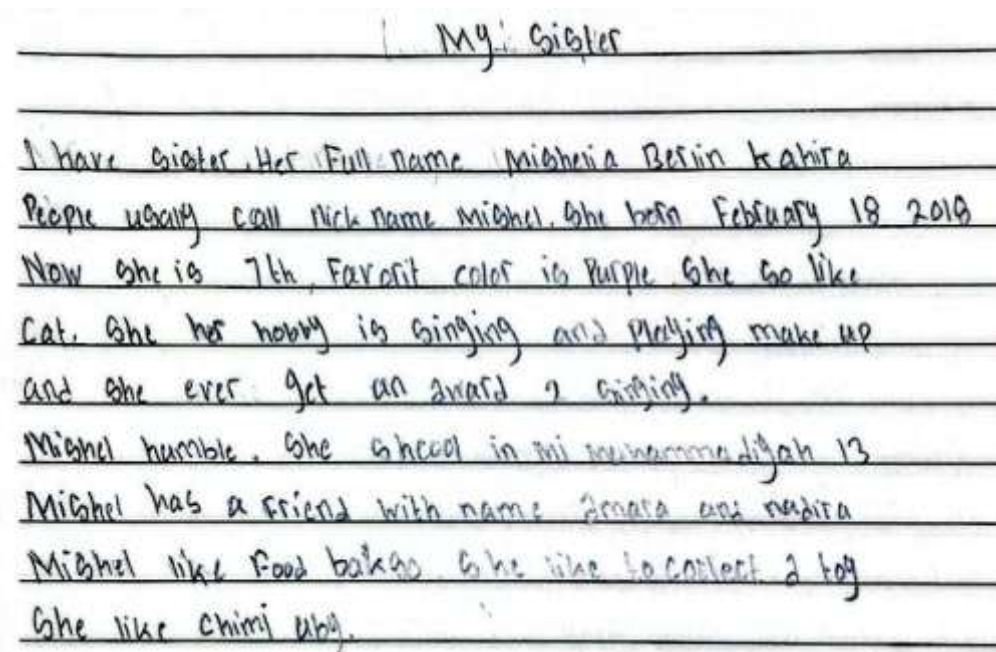 My Sister
I have sister. Her Full name Mishelia Berlin kahira
People usaly call nick name Mishel. She born February 18 2018
Now she is 7th, Favorit color is Purple She So like
Cat. She her hobby is singing and Playing make up
and she ever get an award 2 singing.
Mishel humble. She shcool in mi muhammadijah 13
Mishel has a Friend with name amara and nadira
Mishel like Food bakso. She like to collect a toy
She like chimi